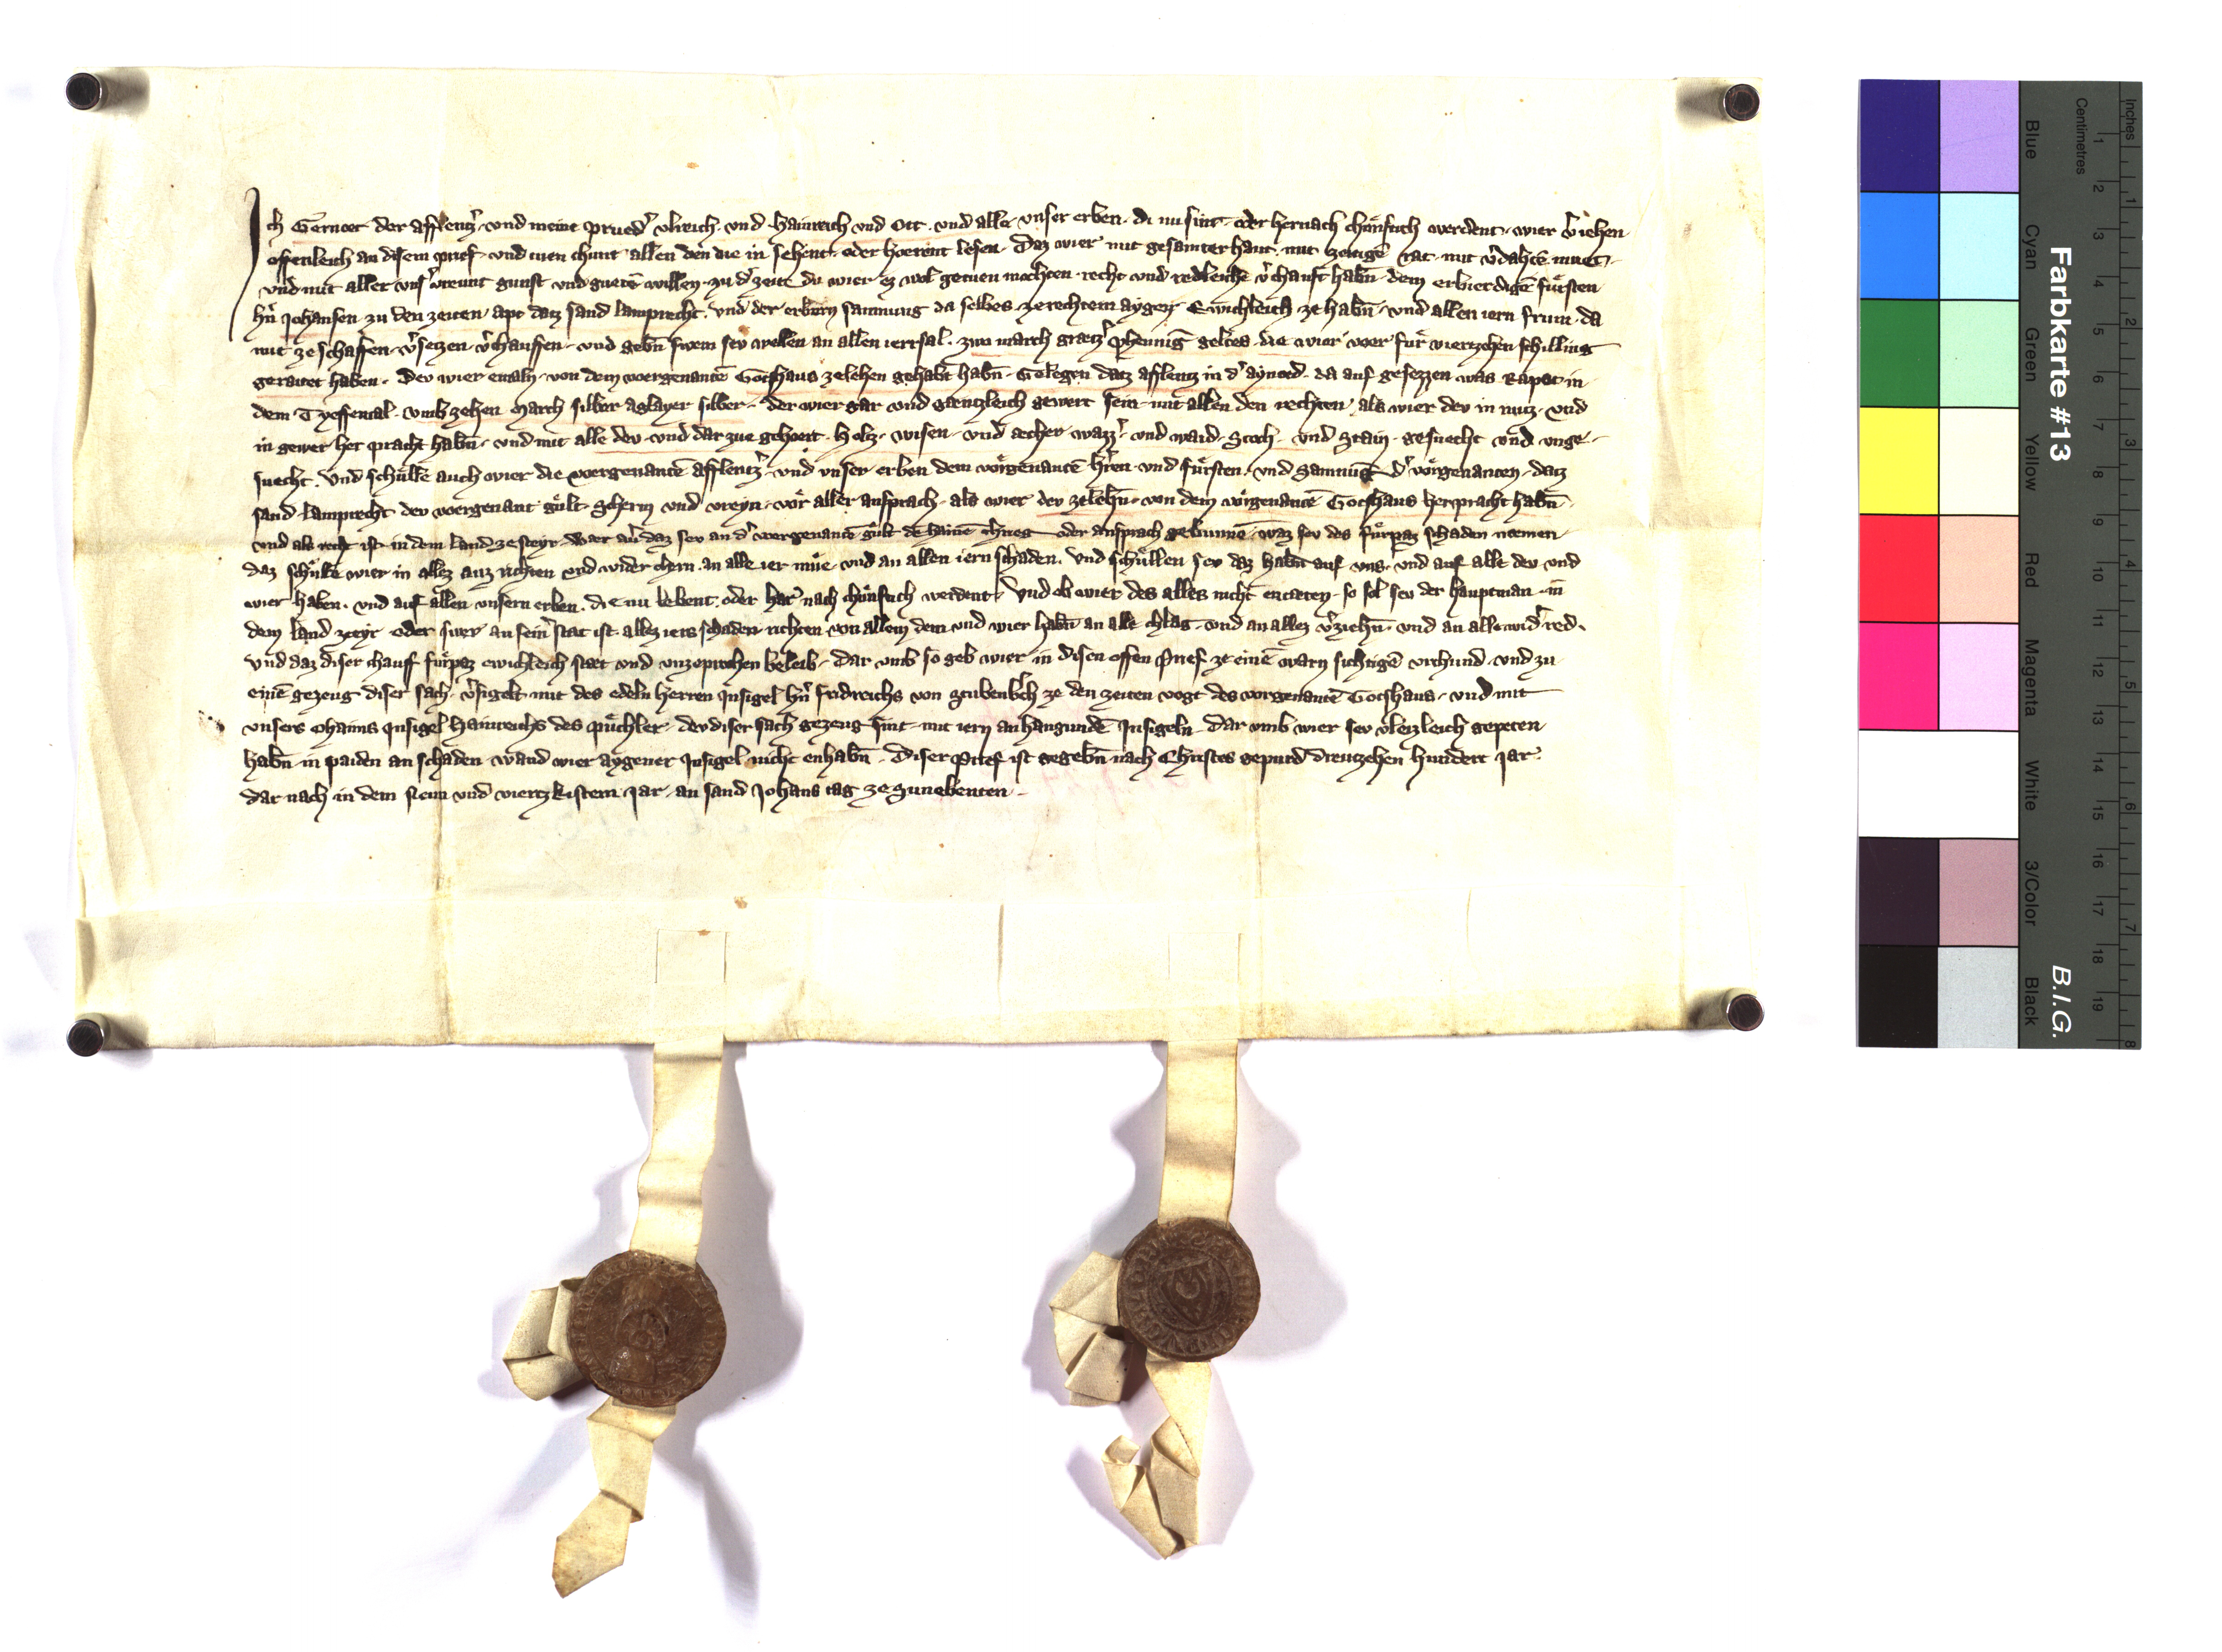 Ich Gernot der afflentzꝰ und meine pruedꝰ ulreich und Hainreich und Ott und alle unser erben di nu sint oder hernach chuͤnfuch werdent wier v̄iehen
offenleich an disem prief und tuen chunt allen den die in sehent oder hoerent lesen Daz wier mit gesamter hant mit zeitigē rat mit v̄dahtē muet
und mit aller unsꝰ vreunt gunst und guetē willen zu dꝰ zeit du wier ez wol getuen mochten recht und redleiche v̄chauft habn̄ dem erbierdigē fuͤrsten
hn̄ Johansen zu den zeiten apt datz sand lamprecht und der erbern samnung da selbes ze rechtem aygen Ewichleich ze habn̄ und allen iern frum da
mit ze schaffen v̄setzen v̄chauffen und gebn̄ swem sev wellen an allen ierrsal zwo march graetzꝰ phennig geltes die wier voer fuͤr viertzehen schilling
geraitet haben Dev wier emaln von dem voergenantē Gotshaus ze lehen gehabt habn̄ Gelegen datz afflentz in dꝰ aynoed da auf gesezzen was Rapot in
dem Tyeffental umb zehen march silber aglayer silber der wier gar und gaentzleich gewert sein mit allen den rechten als wier dev in nutz und
in gewer her pracht habn̄ und mit alle dev und dar zue gehoert Holtz wisen und aecher wazzꝰ und waid Stoch und Stain gesuecht und unge
suecht Und schuͤlle auch wier die voergenantē afflentzꝰ und unser erben dem voͤrgenantē hr̄en und fuͤrsten und Samnūg dꝰ voͤrgenanten datz
sand lamprecht dev voergenant guͤlt scherm und vreyn voͤr aller ansprach als wier dev ze lehn̄ von dem voͤrgenantē Gotshaus herpracht habn̄
und als recht ist in dem land ze steyr Waer auꝰ daz sev an dꝰ voergenantē guͤlt dehainē chrieg oder ansprach gebunnē waz sev des fuͤrpaz schaden naemen
daz schuͤlle wier in allez auz richten und wider chern an alle ier mue und an allen iern schaden Und schuͤllen sev daz habn̄ auf uns und auf alle dev und
wier haben und auf allen unsern erben die nu lebent oder har nach chuͤnfuch werdent Und ob wier des alles nicht entaeten so sol sev der hauptman in
dem land ze steyr oder swer an seinꝰ stat ist allez iers schaden richten von allem dem und wier habn̄ an alle chlag und an allez v̄ziehn̄ und an alle widꝰred
Und daz diser chauff fuͤrpaz ewichleich staet und unzeprochen beleib Dar umb so geb wier in disen offen prief ze einē warn sichtigē urchund und zu
einē gezeug diser sach v̄sigelt mit des edeln herren Insigel hn̄ fridreichs von Stubenbꝰch ze den zeiten vogt des vorgenantē Gotshaus und mit
unsers ohaims Insigel Hainreichs des puͤchler dev diser sach gezeug sint mit iern anhangundē Insigeln Dar umb wier sev vleizleich gepeten
habn̄ in paiden an schaden wand wier aygener Insigel nicht enhabn̄ Diser Prief ist gegebn̄ nach Christes gepurd dreutzehen hundert Jar
dar nach in dem Neun und viertzkistem Jar an sand Johans tag ze Sunebenten
Farbkarte #13
B.I.G.
Inches
Centimetres
Blue
Cyan
Green
Yellow
Red
Magenta
White
3/Color
Black
1 2 3 4 5 6 7 8 9 10 11 12 13 14 15 16 17 18 19
1 2 3 4 5 6 7 8